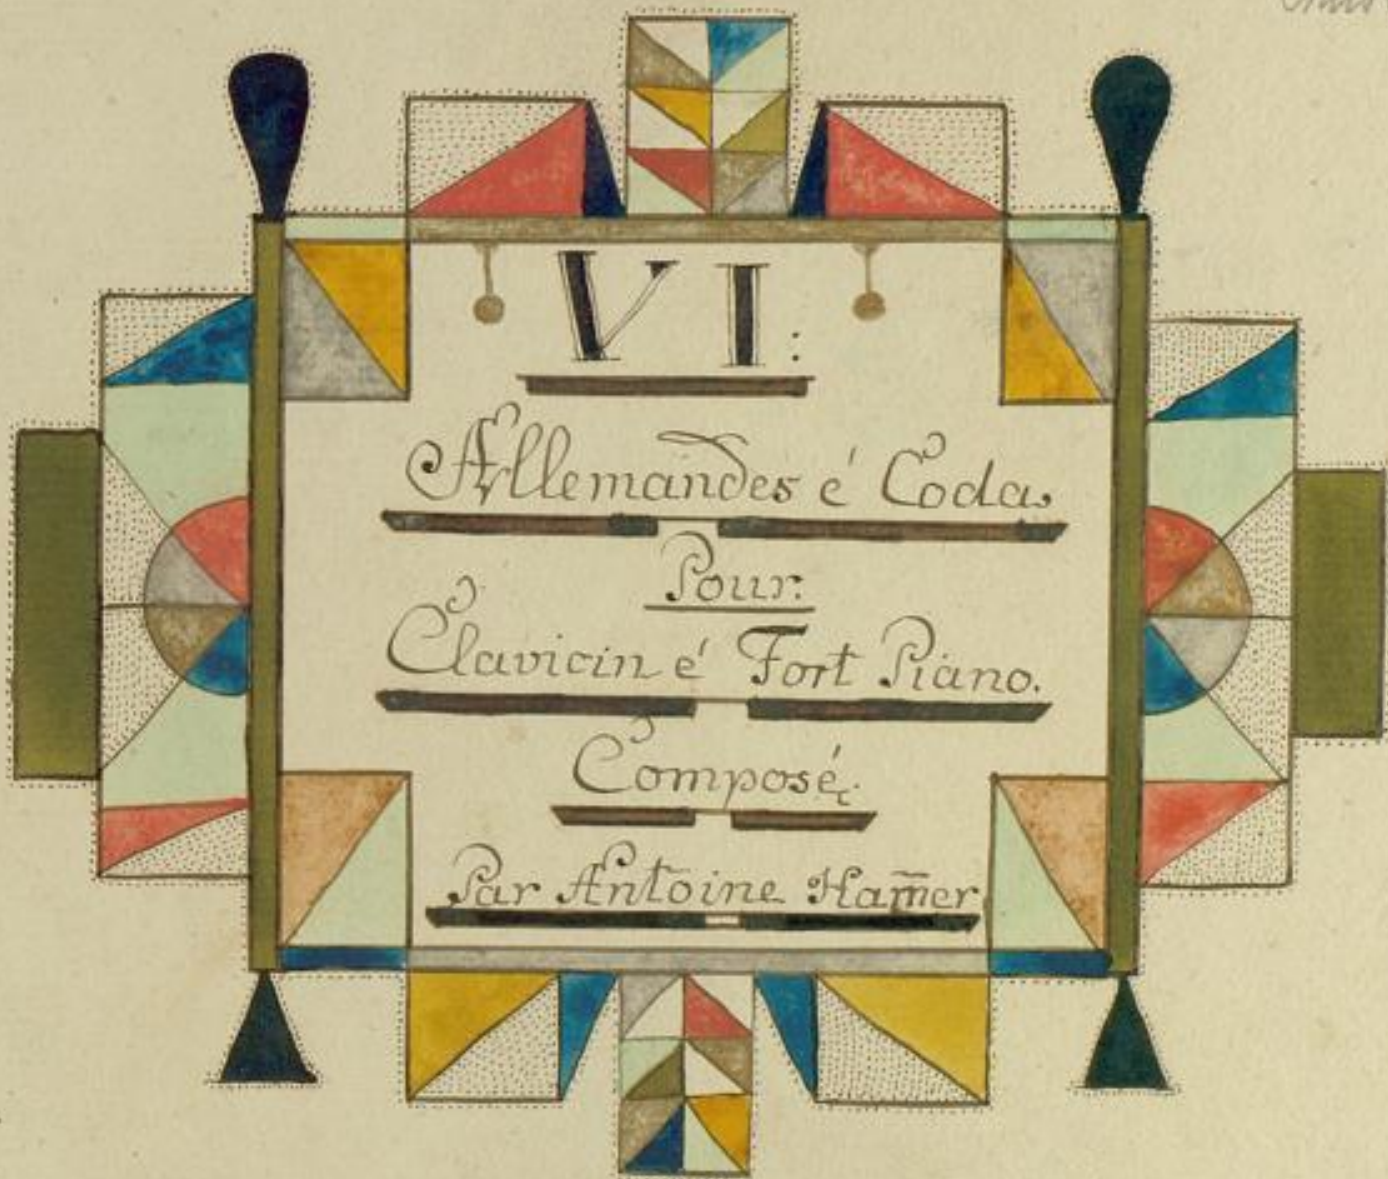 VI:
Allemandes é Coda
Pour:
Clavicin é Fort Piano.
Composé.
Par Antoine Ham̄er